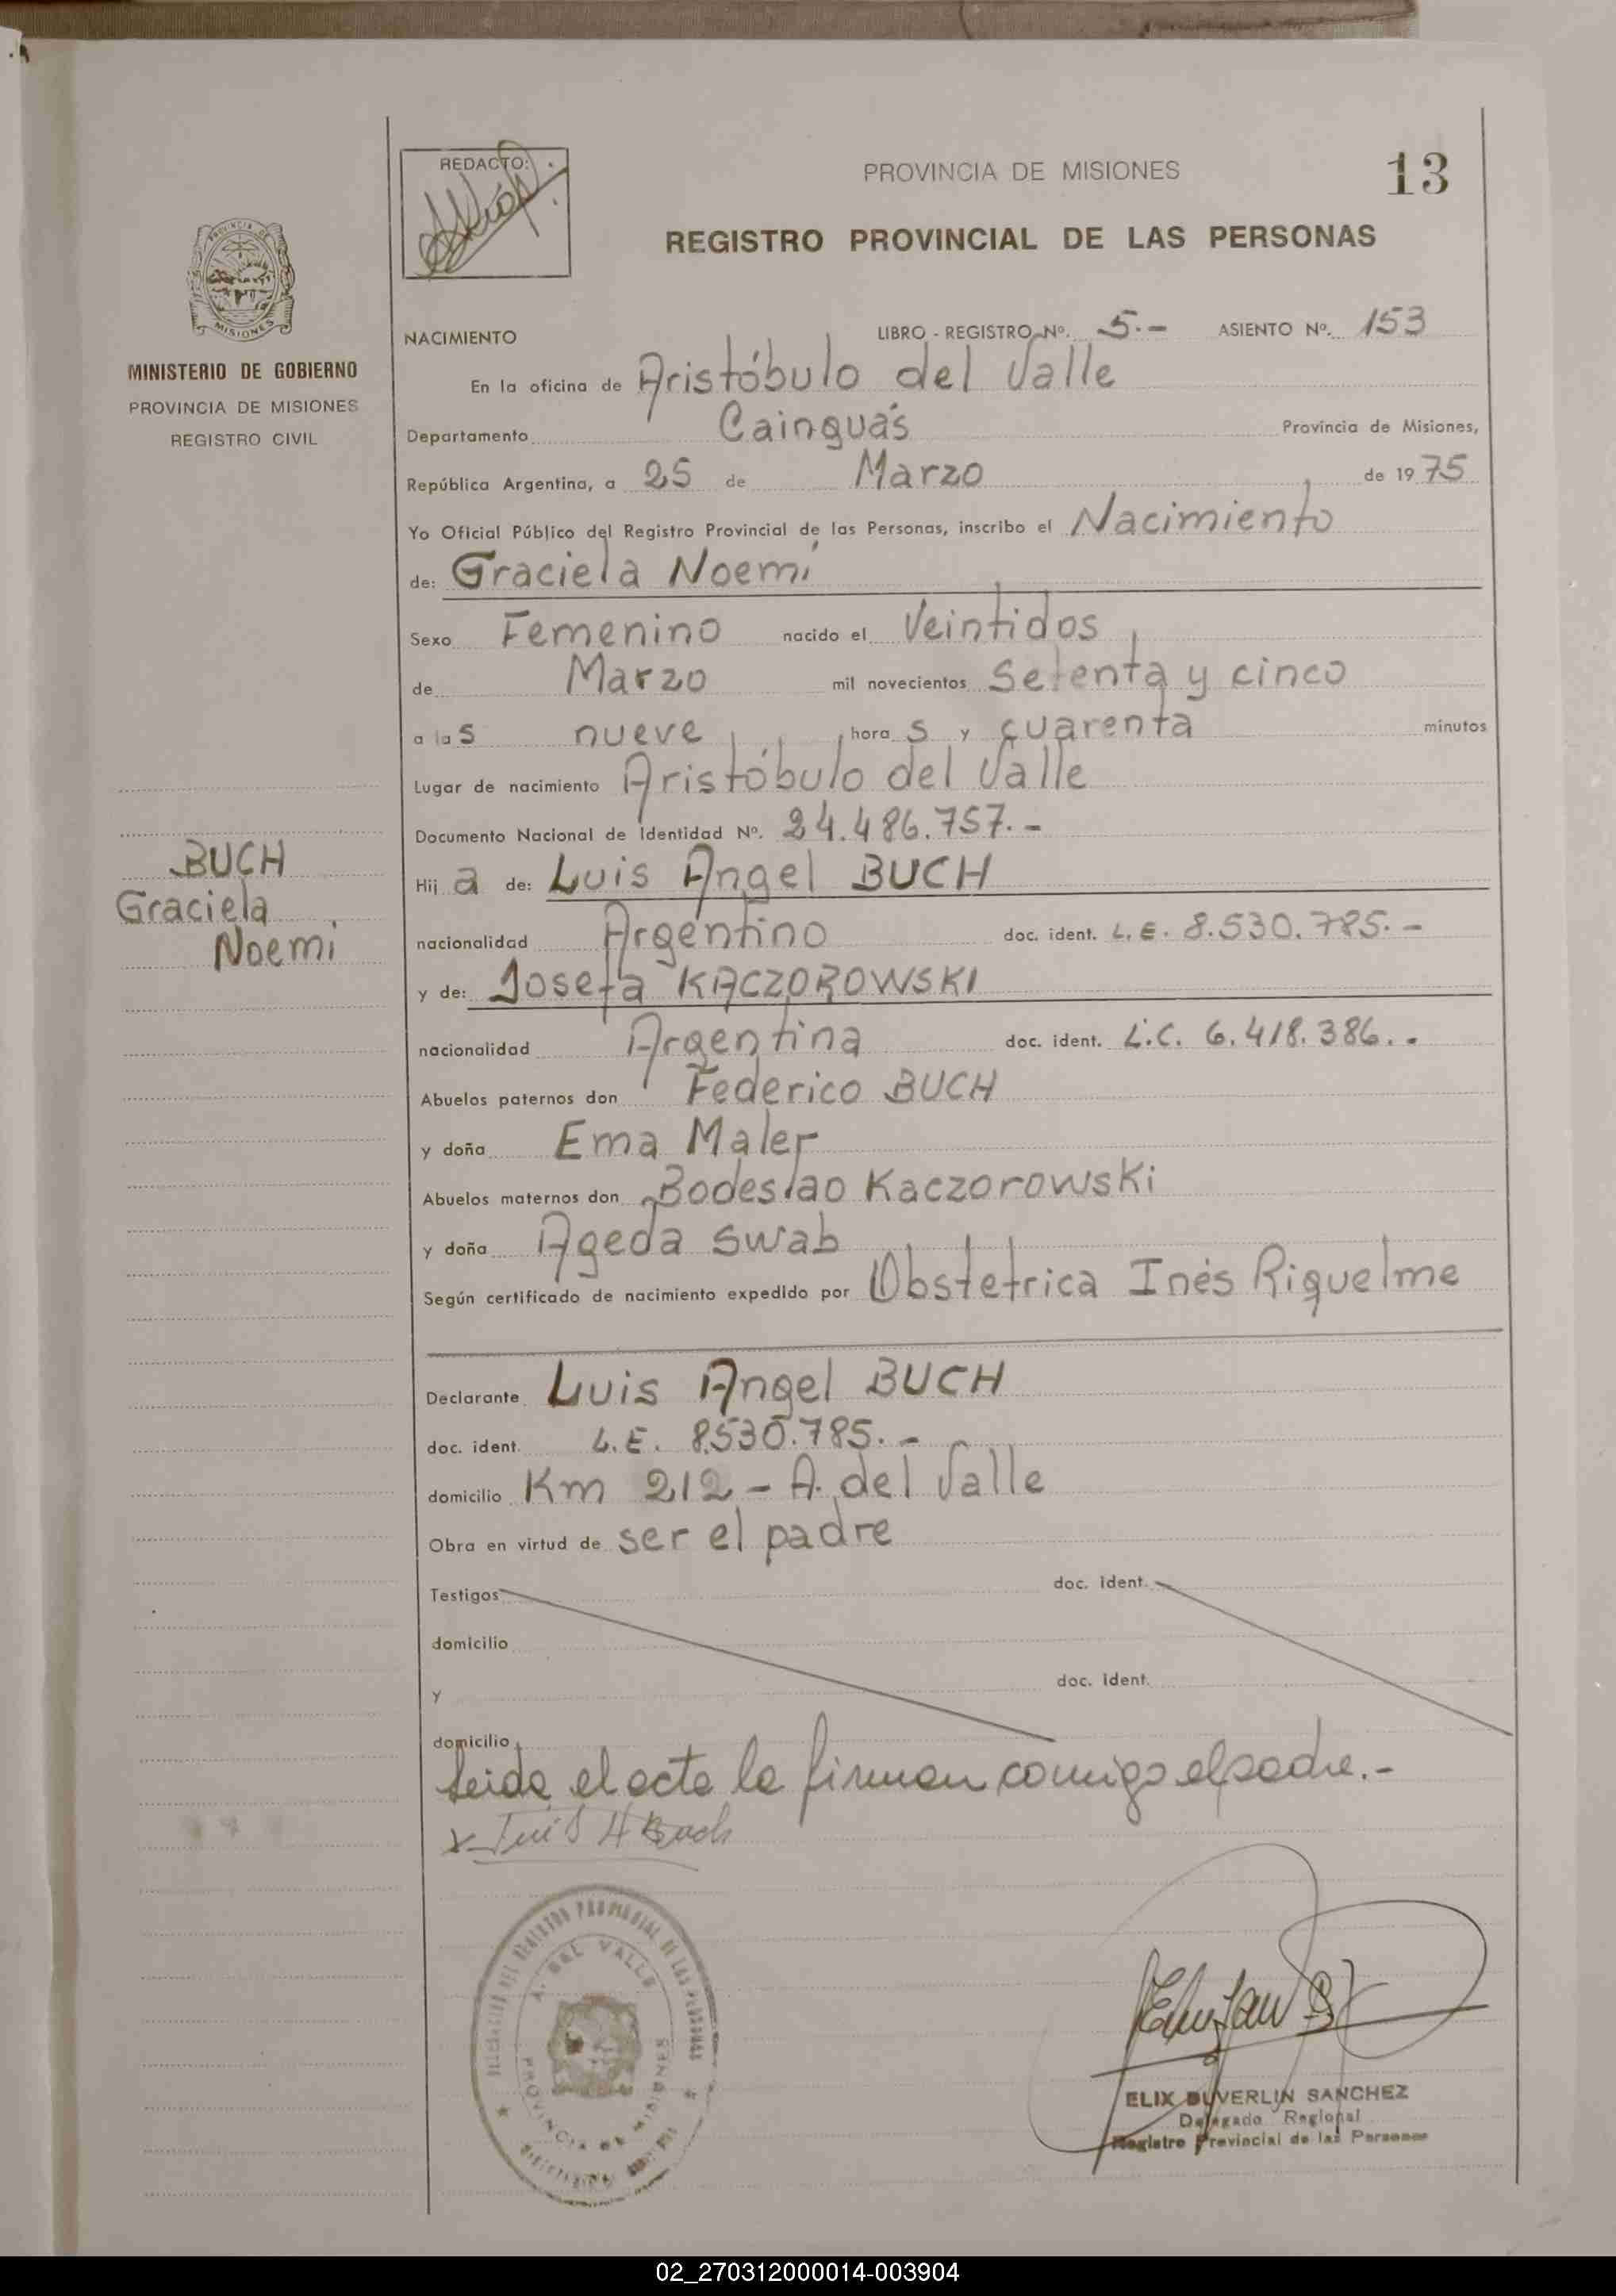 REDACTO:
PROVINCIA DE MISIONES
13
REGISTRO PROVINCIAL DE LAS PERSONAS
MISIONES
MINISTERIO DE GOBIERNO
PROVINCIA DE MISIONES
REGISTRO CIVIL
NACIMIENTO
LIBRO - REGISTRO Nº. 5.- ASIENTO Nº. 153
En la oficina de Aristóbulo del Valle
Departamento Cainguás Provincia de Misiones,
República Argentina, a 25 de Marzo de 1975
Yo Oficial Público del Registro Provincial de las Personas, inscribo el Nacimiento
de: Graciela Noemí
Sexo Femenino nacido el Veintidos
de Marzo mil novecientos Setenta y cinco
a las nueve horas y cuarenta minutos
Lugar de nacimiento Aristóbulo del Valle
Documento Nacional de Identidad Nº. 24.486.757.-
BUCH
Graciela
Noemi
Hija de: Luis Angel BUCH
nacionalidad Argentino doc. ident. L.E. 8.530.785.-
y de: Josefa KACZOROWSKI
nacionalidad Argentina doc. ident. L.C. 6.418.386..
Abuelos paternos don Federico BUCH
y doña Ema Maler
Abuelos maternos don Bodeslao Kaczorowski
y doña Ageda Swab
Según certificado de nacimiento expedido por Obstetrica Inés Riquelme
Declarante Luis Angel BUCH
doc. ident. L.E. 8.530.785.-
domicilio Km 212 - A. del Valle
Obra en virtud de ser el padre
Testigos doc. ident.
domicilio
y doc. ident.
domicilio
Leida el acta la firman comigo el padre.-
x Luis A Buch
DELEGACION DEL REGISTRO PROVINCIAL DE LAS PERSONAS
A. DEL VALLE
PROVINCIA DE MISIONES
ELIX DUVERLIN SANCHEZ
Delegado Regional
Registro Provincial de las Personas
02_270312000014-003904